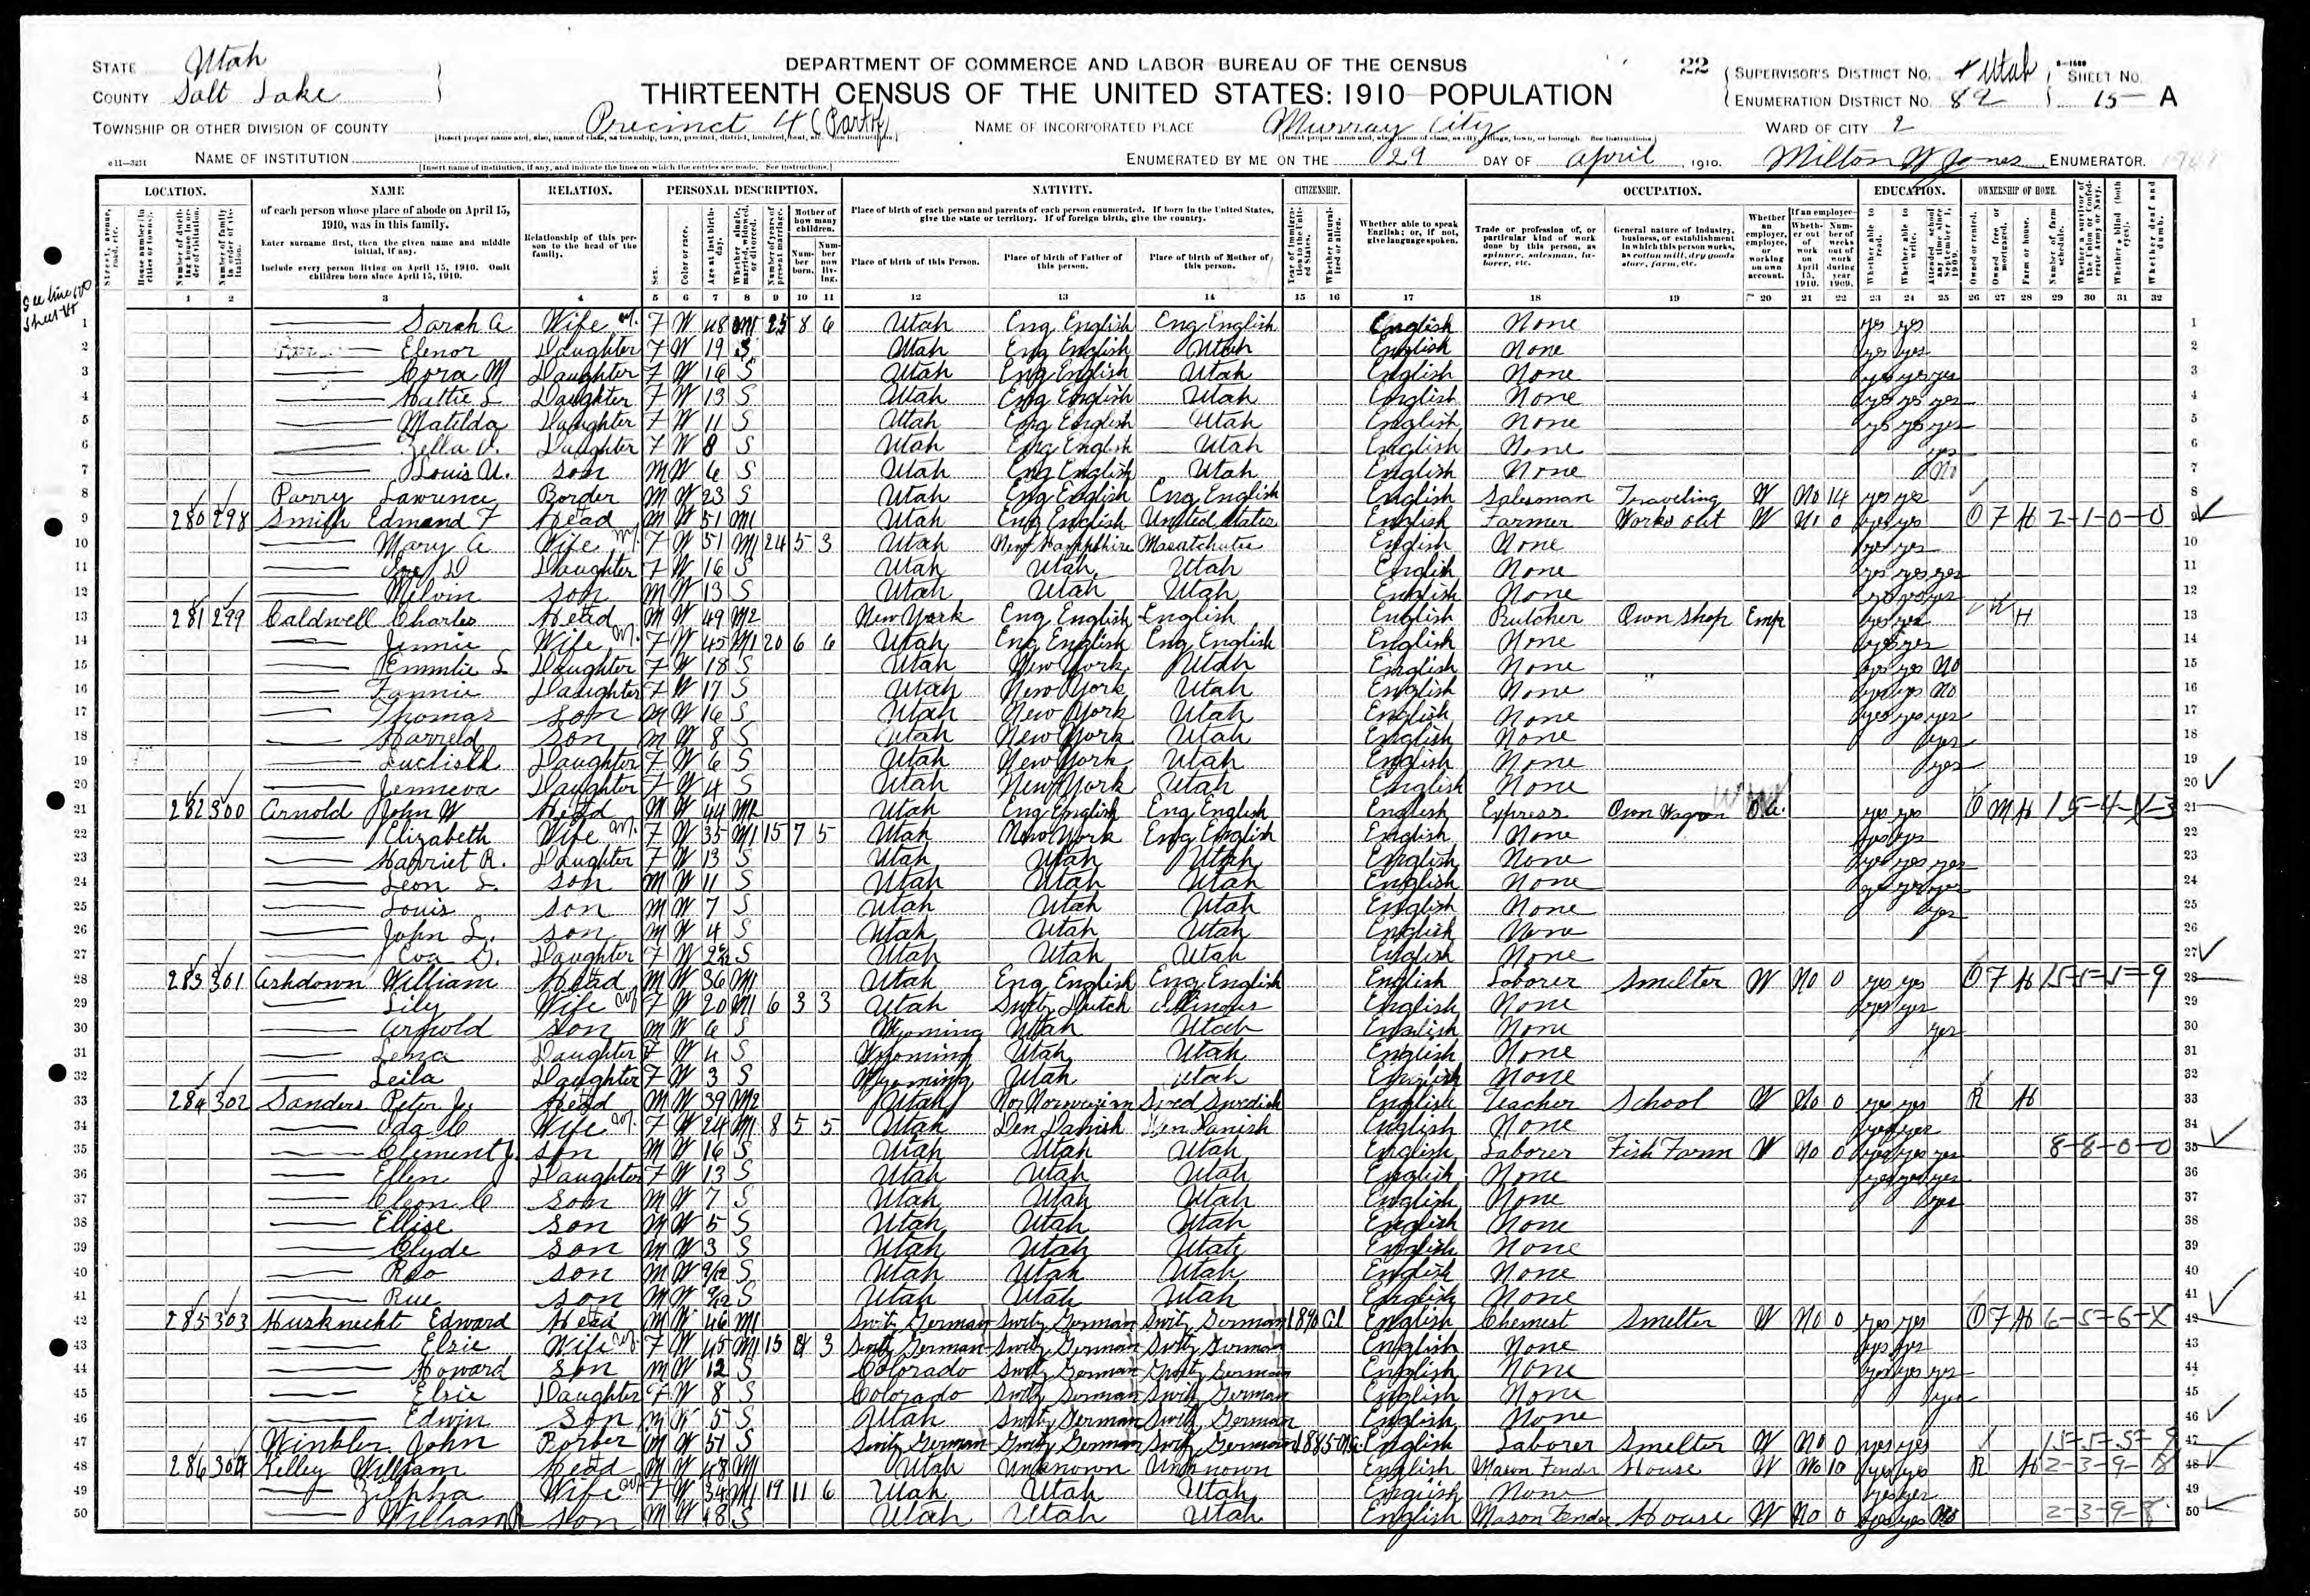 STATE Utah
COUNTY Salt Lake
TOWNSHIP OR OTHER DIVISION OF COUNTY Precinct 4 (Part of
NAME OF INSTITUTION
DEPARTMENT OF COMMERCE AND LABOR BUREAU OF THE CENSUS
THIRTEENTH CENSUS OF THE UNITED STATES: 1910 POPULATION
NAME OF INCORPORATED PLACE Murray City
ENUMERATED BY ME ON THE 29 DAY OF April, 1910. Milton W Jones ENUMERATOR.
22
SUPERVISOR'S DISTRICT NO. Utah
ENUMERATION DISTRICT NO. 82
SHEET NO. 15 A
WARD OF CITY 2
LOCATION. NAME RELATION. PERSONAL DESCRIPTION. NATIVITY. CITIZENSHIP. OCCUPATION. EDUCATION. OWNERSHIP OF HOME.
of each person whose place of abode on April 15, 1910, was in this family.
Enter surname first, then the given name and middle initial, if any.
Include every person living on April 15, 1910. Omit children born since April 15, 1910.
Relationship of this person to the head of the family.
Place of birth of each person and parents of each person enumerated. If born in the United States, give the state or territory. If of foreign birth, give the country.
Place of birth of this Person. Place of birth of Father of this person. Place of birth of Mother of this person.
Whether able to speak English; or, if not, give language spoken.
Trade or profession of, or particular kind of work done by this person, as spinner, salesman, laborer, etc.
General nature of Industry, business, or establishment in which this person works, as cotton mill, dry goods store, farm, etc.
1 2 3 4 5 6 7 8 9 10 11 12 13 14 15 16 17 18 19 20 21 22 23 24 25 26 27 28 29 30 31 32
1 Sarah A Wife F W 48 M1 25 8 6 Utah Eng English Eng English English None yes yes
2 Elenor Daughter F W 19 S Utah Eng English Utah English None yes yes
3 Cora M Daughter F W 16 S Utah Eng English Utah English None yes yes yes
4 Hattie L Daughter F W 13 S Utah Eng English Utah English None yes yes yes
5 Matilda Daughter F W 11 S Utah Eng English Utah English None yes yes yes
6 Zella V. Daughter F W 8 S Utah Eng English Utah English None yes
7 Louis A. Son M W 6 S Utah Eng English Utah English None No
8 Parry Lawrence Border M W 23 S Utah Eng English Eng English English Salesman Traveling W No 14 yes yes
9 280 298 Smith Edmand F Head M W 51 M1 Utah Eng English United States English Farmer Works out W No 0 yes yes O F H 2-1-0-0
10 Mary A Wife F W 51 M1 24 5 3 Utah New Hampshire Masatchutes English None yes yes
11 D Daughter F W 16 S Utah Utah Utah English None yes yes yes
12 Melvin Son M W 13 S Utah Utah Utah English None yes yes yes
13 281 299 Caldwell Charles Head M W 49 M2 New York Eng English English English Butcher Own Shop Emp yes yes H
14 Jennie Wife F W 45 M1 20 6 6 Utah Eng English Eng English English None yes yes
15 Emmlie L Daughter F W 18 S Utah New York Utah English None yes yes No
16 Fannie Daughter F W 17 S Utah New York Utah English None yes yes No
17 Thomas Son M W 16 S Utah New York Utah English None yes yes yes
18 Harreld Son M W 8 S Utah New York Utah English None yes
19 Daughter F W 6 S Utah New York Utah English None yes
20 Jenneva Daughter F W 4 S Utah New York Utah English None
21 282 300 Arnold John W Head M W 44 M2 Utah Eng English Eng English English Express Own Wagon O.A. yes yes O M H 15-4-X-3
22 Elizabeth Wife F W 35 M1 15 7 5 Utah New York Eng English English None yes yes
23 Harriet R. Daughter F W 13 S Utah Utah Utah English None yes yes yes
24 Leon L. Son M W 11 S Utah Utah Utah English None yes yes yes
25 Louis Son M W 7 S Utah Utah Utah English None yes
26 John L. Son M W 4 S Utah Utah Utah English None
27 Eva D. Daughter F W S Utah Utah Utah English None
28 283 301 Ashdown William Head M W 36 M1 Utah Eng English Eng English English Laborer Smelter W No 0 yes yes O F H 15-5-5-9
29 Lily Wife F W 20 M1 6 3 3 Utah Switz Dutch Illinois English None yes yes
30 Arnold Son M W 6 S Wyoming Utah Utah English None yes
31 Lena Daughter F W 4 S Wyoming Utah Utah English None
32 Leila Daughter F W 3 S Wyoming Utah Utah English None
33 284 302 Sanders Peter J. Head M W 39 M2 Utah Nor Norweigian Swed Swedish English Teacher School W No 0 yes yes R H
34 Ada C Wife F W 24 M1 8 5 5 Utah Den Danish Den Danish English None yes yes
35 Clement J. Son M W 16 S Utah Utah Utah English Laborer Fish Farm W No 0 yes yes yes 8-8-0-0
36 Ellen Daughter F W 13 S Utah Utah Utah English None yes yes yes
37 Cleon C Son M W 7 S Utah Utah Utah English None yes
38 Ellise Son M W 5 S Utah Utah Utah English None
39 Clyde Son M W 3 S Utah Utah Utah English None
40 Reo Son M W 9/12 S Utah Utah Utah English None
41 Rue Son M W 9/12 S Utah Utah Utah English None
42 285 303 Husknecht Edward Head M W 46 M1 Switz German Switz German Switz German 1890 Al English Chemest Smelter W No 0 yes yes O F H 6-5-6-X
43 Elsie Wife F W 45 M1 15 4 3 Switz German Switz German Switz German English None yes yes
44 Howard Son M W 12 S Colorado Switz German Switz German English None yes yes yes
45 Elsie Daughter F W 8 S Colorado Switz German Switz German English None yes
46 Edwin Son M W 5 S Utah Switz German Switz German English None
47 Winkler John Border M W 51 S Switz German Switz German Switz German 1885 English Laborer Smelter W No 0 yes yes 15-5-5-9
48 286 304 Kelley William Head M W 48 M1 Utah Unknown Unknown English Mason Tender House W No 10 yes yes R H 2-3-9-8
49 Zilpha Wife F W 34 M1 19 11 6 Utah Utah Utah English None yes yes
50 William R Son M W 18 S Utah Utah Utah English Mason Tender House W No 0 yes yes No 2-3-9-8